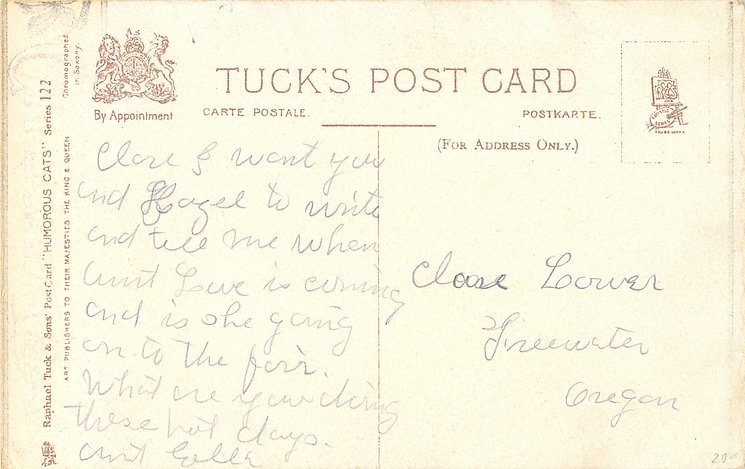 TUCK'S POST CARD
By Appointment
CARTE POSTALE.
POSTKARTE.
(FOR ADDRESS ONLY.)
Raphael Tuck & Sons' Post Card "HUMOROUS CATS" Series 122
Chromographed
in Saxony.
ART PUBLISHERS TO THEIR MAJESTIES THE KING & QUEEN
TRADE MARK
Clare I want you
and Hazel to write
and tell me when
aunt is coming
and is she going
on to the fair.
What are you doing
these hot days.
aunt Lolla
Clare Lower
Freewater
Oregon
20-